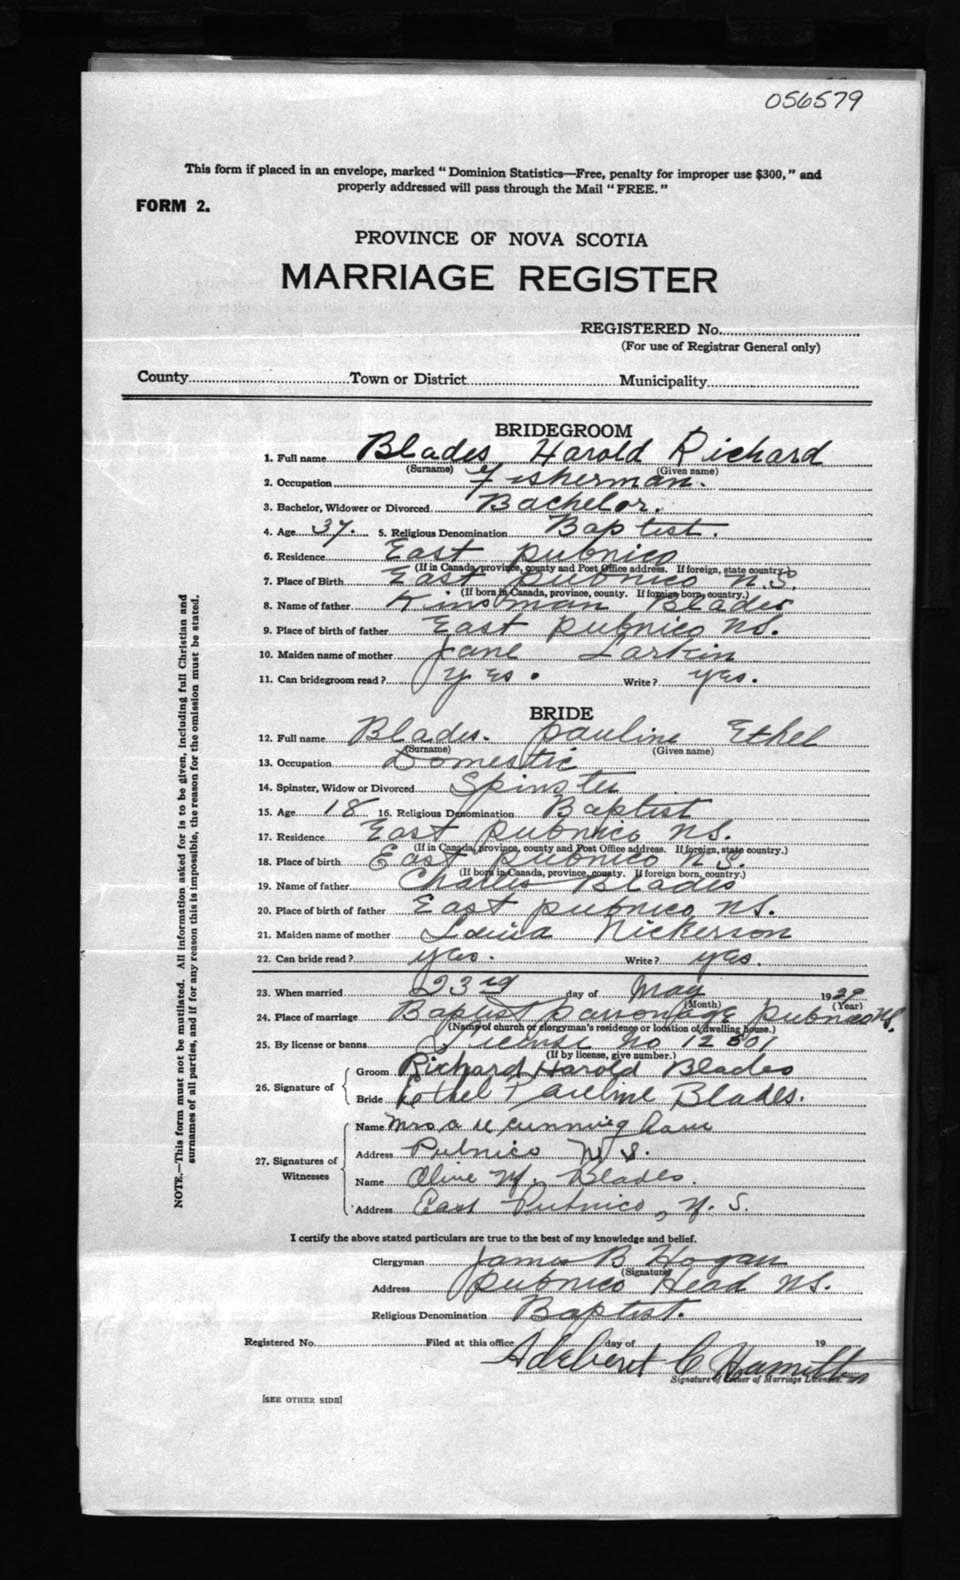 056579
This form if placed in an envelope, marked "Dominion Statistics—Free, penalty for improper use $300," and
properly addressed will pass through the Mail "FREE."
FORM 2.
PROVINCE OF NOVA SCOTIA
MARRIAGE REGISTER
REGISTERED No.
(For use of Registrar General only)
County Town or District Municipality
BRIDEGROOM
1. Full name Blades Harold Richard
(Surname) (Given name)
2. Occupation Fisherman.
3. Bachelor, Widower or Divorced Bachelor.
4. Age 37. 5. Religious Denomination Baptist.
6. Residence East Pubnico
(If in Canada, province, county and Post Office address. If foreign, state country.)
7. Place of Birth East Pubnico N.S.
(If born in Canada, province, county. If foreign born, country.)
8. Name of father Kinsman Blades
9. Place of birth of father East Pubnico NS.
10. Maiden name of mother Jane Larkin
11. Can bridegroom read? Yes. Write? yes.
BRIDE
12. Full name Blades. Pauline Ethel
(Surname) (Given name)
13. Occupation Domestic
14. Spinster, Widow or Divorced Spinster
15. Age 18 16. Religious Denomination Baptist
17. Residence East Pubnico NS.
(If in Canada, province, county and Post Office address. If foreign, state country.)
18. Place of birth East Pubnico N.S.
(If born in Canada, province, county. If foreign born, country.)
19. Name of father Charles Blades
20. Place of birth of father East Pubnico NS.
21. Maiden name of mother Nickerson
22. Can bride read? yes. Write? yes.
23. When married 23rd day of May 1929
(Month) (Year)
24. Place of marriage Baptist Parsonage Pubnico NS.
(Name of church or clergyman's residence or location of dwelling house.)
25. By license or banns License No 12501
(If by license, give number.)
26. Signature of
Groom Richard Harold Blades
Bride Ethel Pauline Blades.
27. Signatures of Witnesses
Name Mrs a Cunningham
Address Pubnico N.S.
Name Olive M. Blades.
Address East Pubnico, N.S.
I certify the above stated particulars are true to the best of my knowledge and belief.
Clergyman James B Hogan
(Signature)
Address Pubnico Head NS.
Religious Denomination Baptist.
Registered No. Filed at this office day of 19
Adelbert C Hamilton
Signature of Issuer of Marriage Licenses.
[SEE OTHER SIDE]
NOTE.—This form must not be mutilated. All information asked for is to be given, including full Christian and
surnames of all parties, and if for any reason this is impossible, the reason for the omission must be stated.